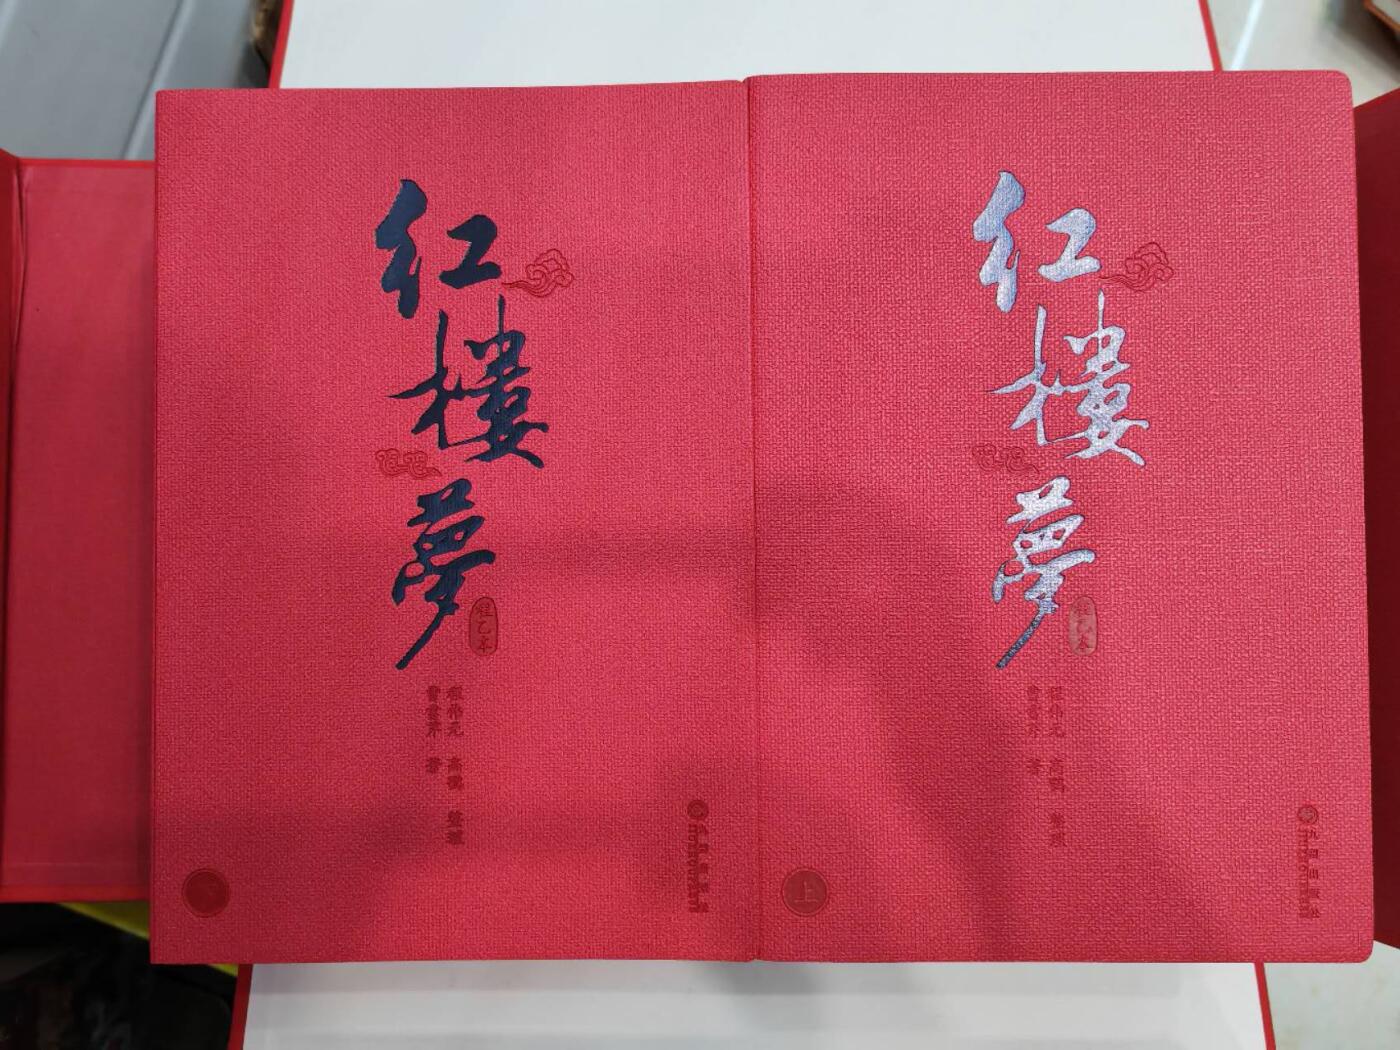 红楼夢
程乙本
曹雪芹 著
程伟元 高鹗 整理
下
红楼夢
程乙本
曹雪芹 著
程伟元 高鹗 整理
上